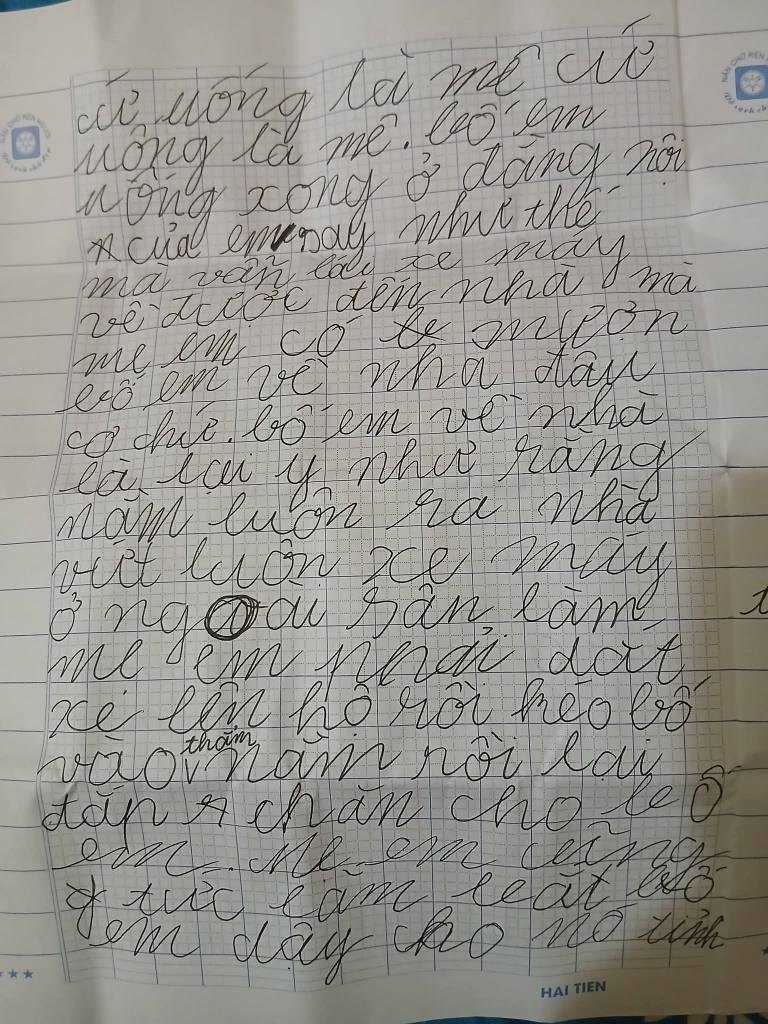 cứ uống là mê cứ
uông là mê. bố em
uống xong ở đằng nội
của em say như thế
mà vẫn lái xe máy
về được đến nhà mà
mẹ em có mượn
bố em về nhà đâu
cơ chứ. bố em về nhà
là lại y như rằng
nằm luôn ra nhà
vứt luôn xe máy
ở ngoài sân làm
mẹ em phải dắt
xe lên hộ rồi kéo bố
vào thảm nằm rồi lại
đắp chăn cho bố
em. Mẹ em cũng
tức lắm bắt bố
em dậy cho nó tỉnh
HAI TIEN